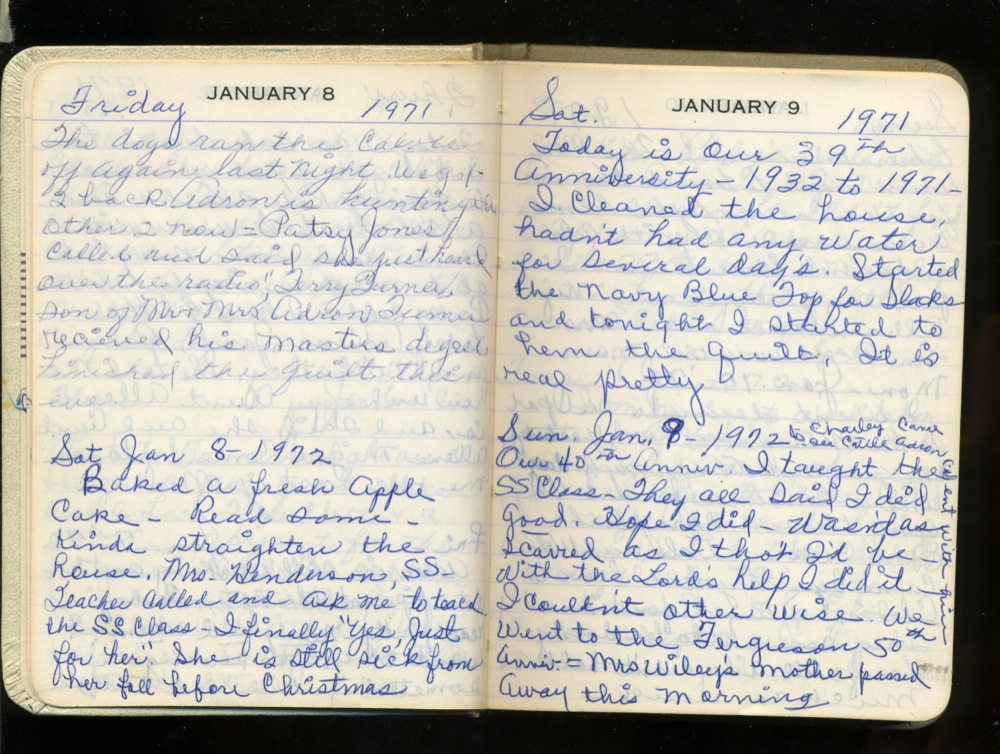 JANUARY 8
Friday 1971
The dogs ran the Calves
off again last night. We got
2 back Adron is hunting the
other 2 now = Patsy Jones
called and said she just heard
over the radio, "Terry Turner,
son of Mr & Mrs Adron Turner
recieved his masters degree
Finished the quilt this
Sat Jan 8 - 1972
Baked a fresh Apple
Cake - Read some -
Kinda straighten the
house. Mrs. Henderson, SS-
Teacher called and ask me to teach
the SS Class - I finally "Yes, Just
for her". She is still sick from
her fall before Christmas
JANUARY 9
Sat. 1971
Today is Our 39th
Anniversity - 1932 to 1971 -
I Cleaned the house,
hadn't had any water
for several day's. Started
the Navy Blue Top for Slacks
and tonight I started to
hem the quilt. It is
real pretty
Sun. Jan. 9 - 1972 Charley Came
to see Cattle Adron
Our 40th Anniv I taught the
SS Class - They all said I did
Good. Hope I did - Wasn't as
scared as I tho't I'd be -
With the Lord's help I did it -
I couldn't other wise. We
Went to the Ferguson 50th
Anniv = Mrs Wiley's mother passed
away this morning
went with him